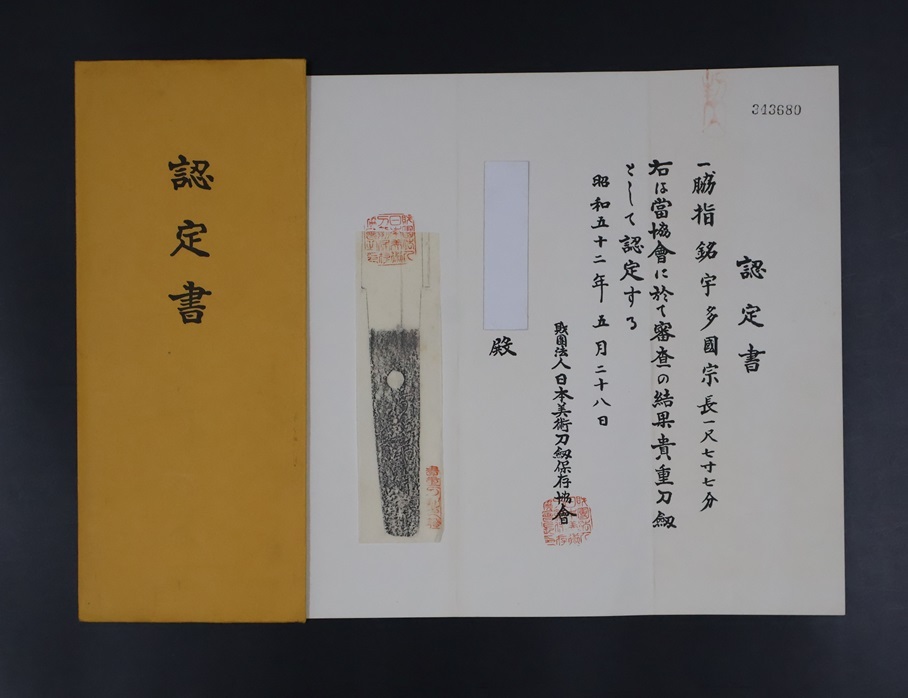 認定書
343680
認定書
一脇指 銘 宇多國宗 長一尺七寸七分
右は當協會に於て審査の結果貴重刀劔
として認定する
昭和五十二年五月二十八日
財團法人日本美術刀劔保存協會
殿